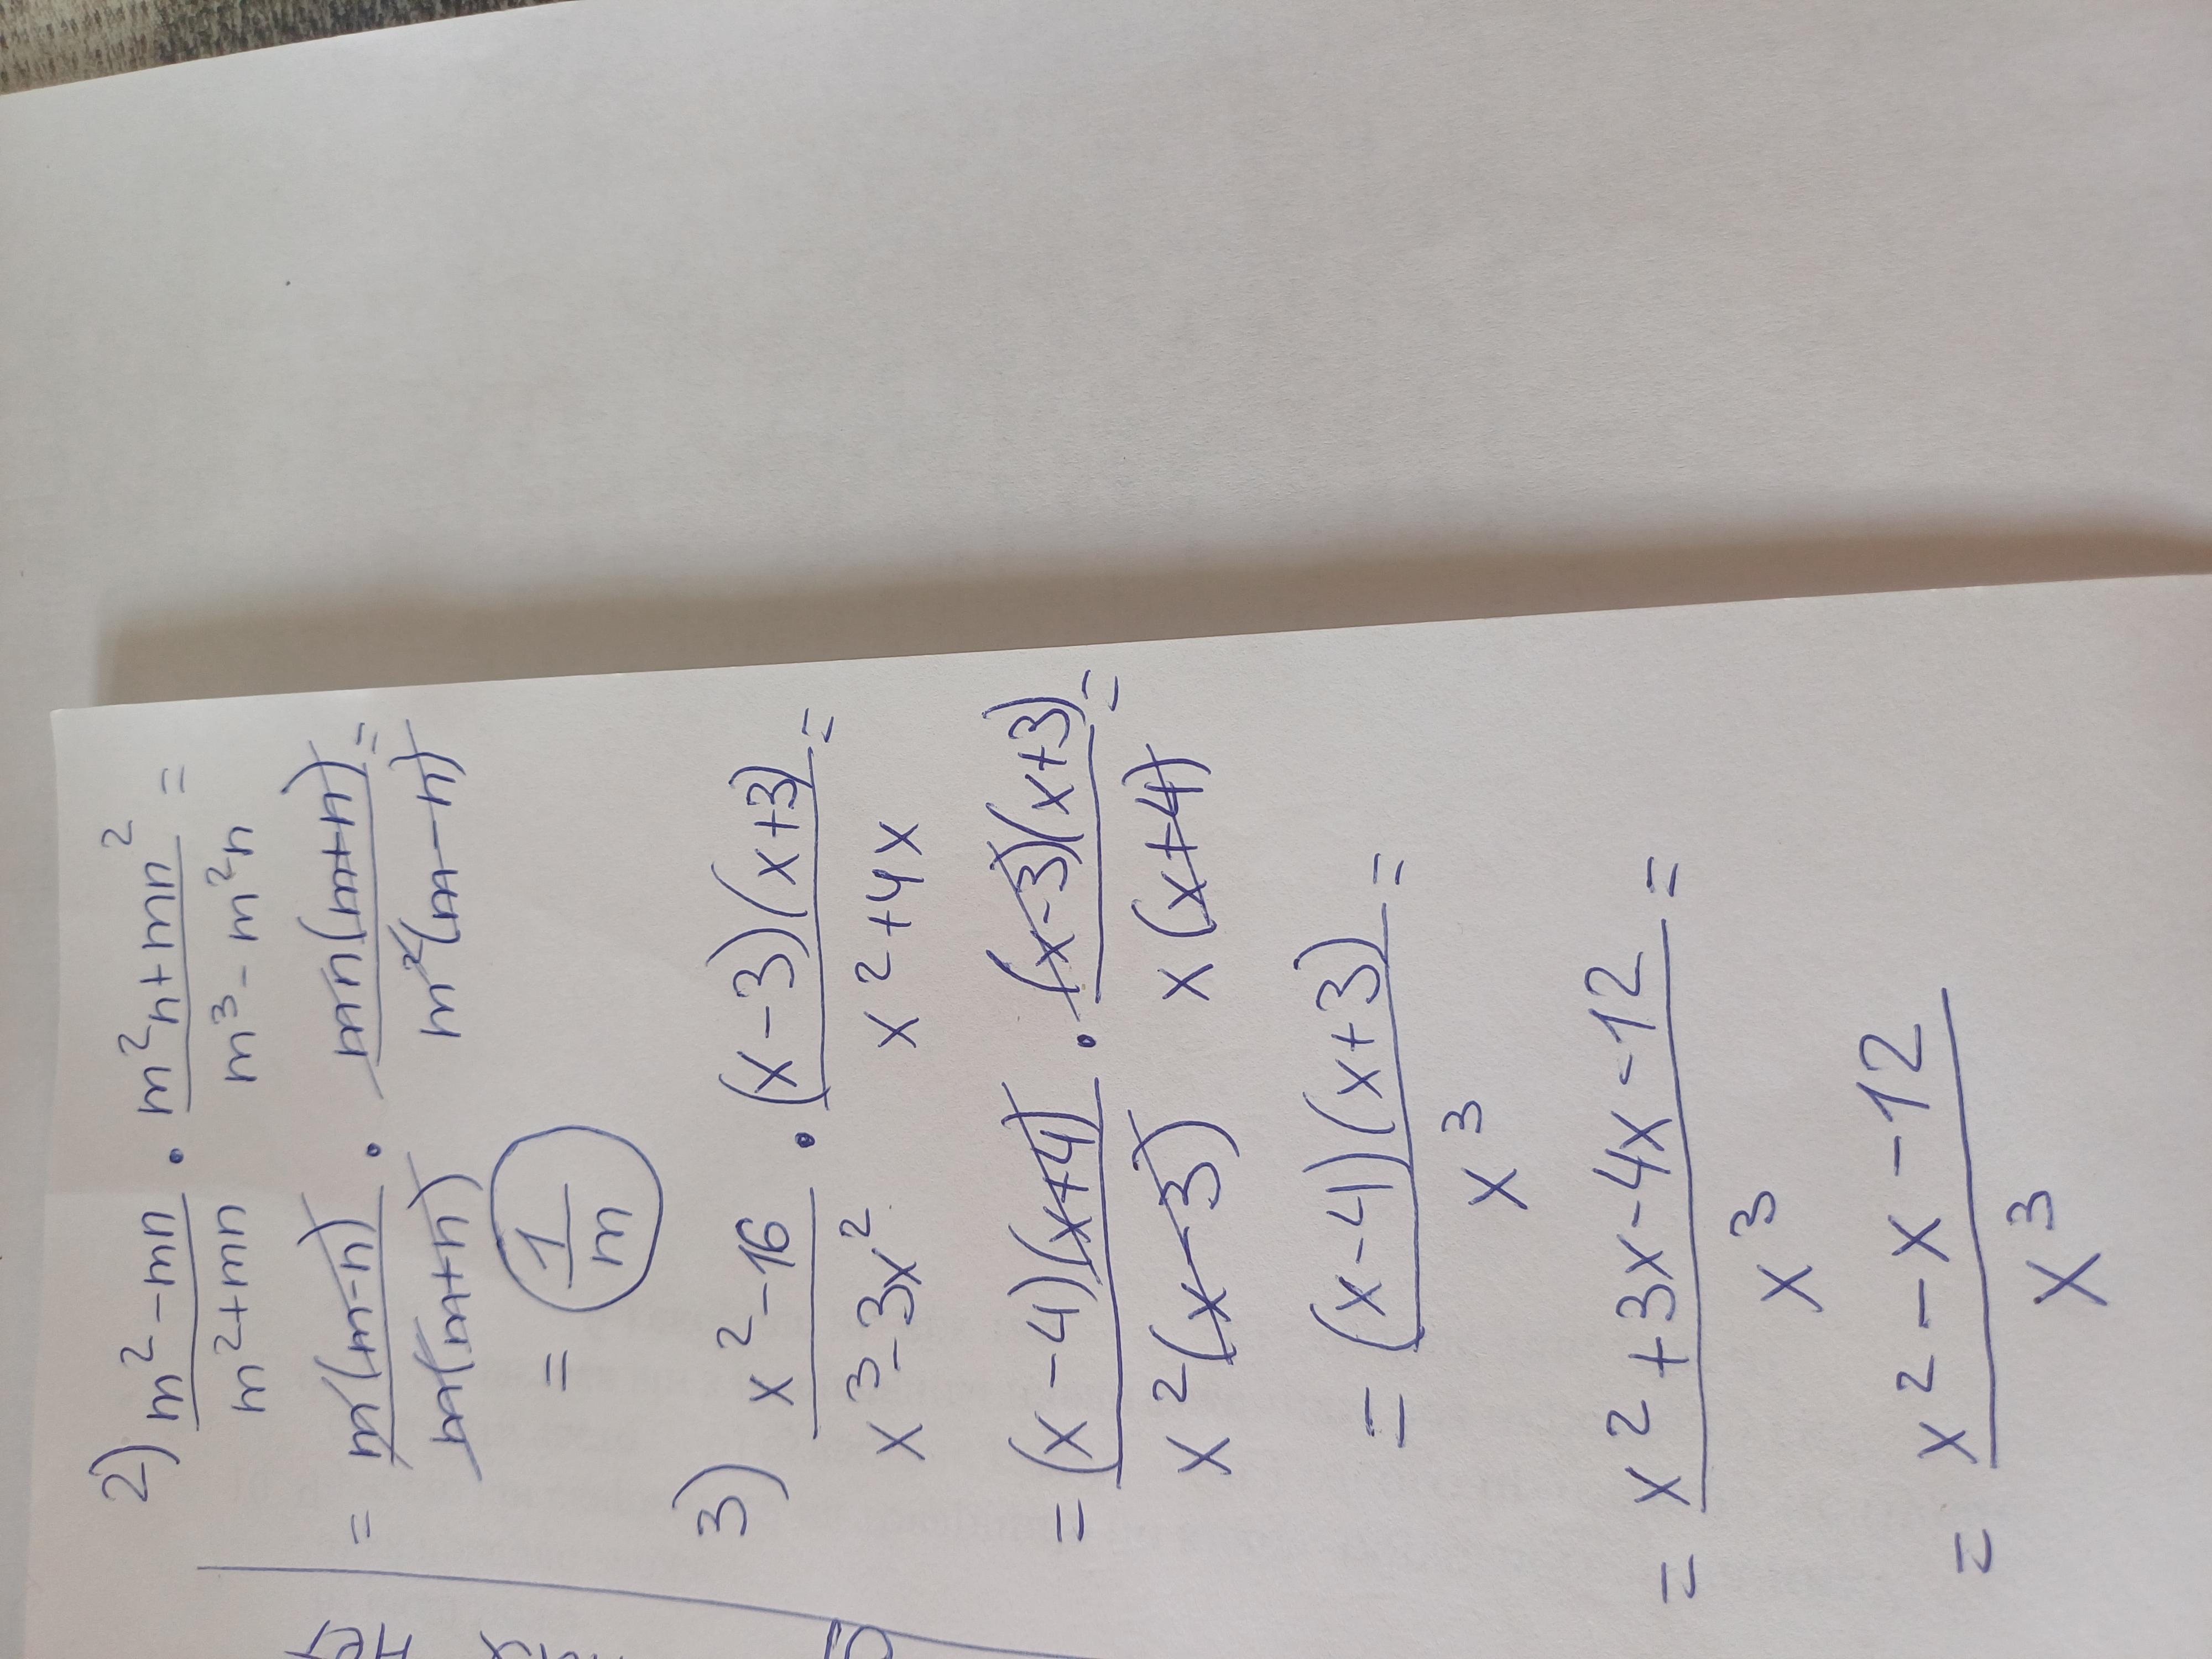 2) (m² - mn)/(m² + mn) · (m²n + mn²)/(m³ - m²n) =
= m(m-n)/m(m+n) · mn(m+n)/m²(m-n) =
= 1/m
3) (x² - 16)/(x³ - 3x²) · (x-3)(x+3)/(x² + 4x) =
= (x-4)(x+4)/x²(x-3) · (x-3)(x+3)/x(x+4) =
= (x-4)(x+3)/x³ =
= (x² + 3x - 4x - 12)/x³ =
= (x² - x - 12)/x³